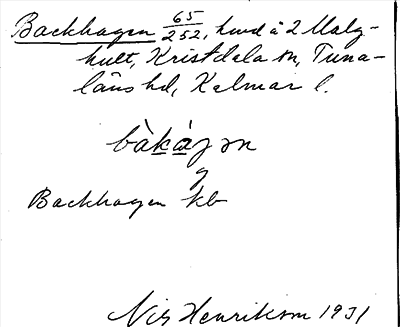 Backhagen 65/252, hmd å 2 Malg-
hult, Kristdala sn, Tuna-
läns hd, Kalmar l.
bàkàgən
g
Backhagen kb
Nils Henrikson 1931